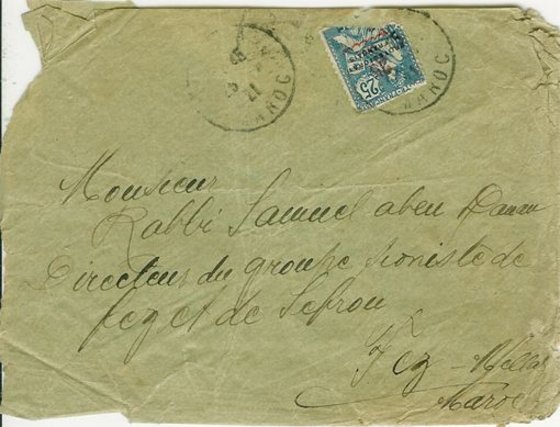 MAROC
25
MAROC
Monsieur
Rabbi Samuel aben Danan
Directeur du groupe sioniste de
fez et de Sefrou
Fez - Mellah
Maroc